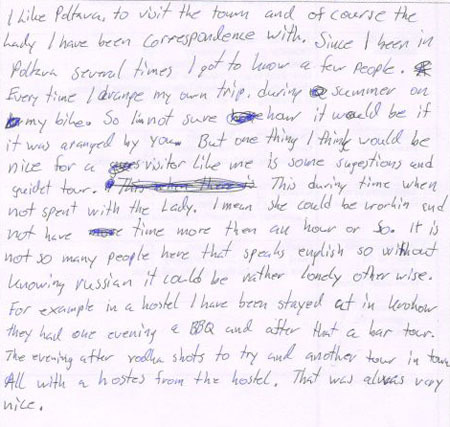 I Like Poltava, to visit the town and of course the
Lady I have been correspondence with. Since I been in
Poltava several times I got to know a few people.
Every time I arange my own trip. during summer on
my bike. So Im not sure how it would be if
it was aranged by you. But one thing I think would be
nice for a visitor like me is some sugestions and
guidet tour. This during time when
not spent with the Lady. I mean she could be workin and
not have time more then an hour or so. It is
not so many people here that speaks english so without
knowing russian it could be rather lonely other wise.
For example in a hostel I have been stayed at in
they had one evening a BBQ and after that a bar tour.
The evening after vodka shots to try and another tour in town
All with a hostes from the hostel. That was always very
nice.